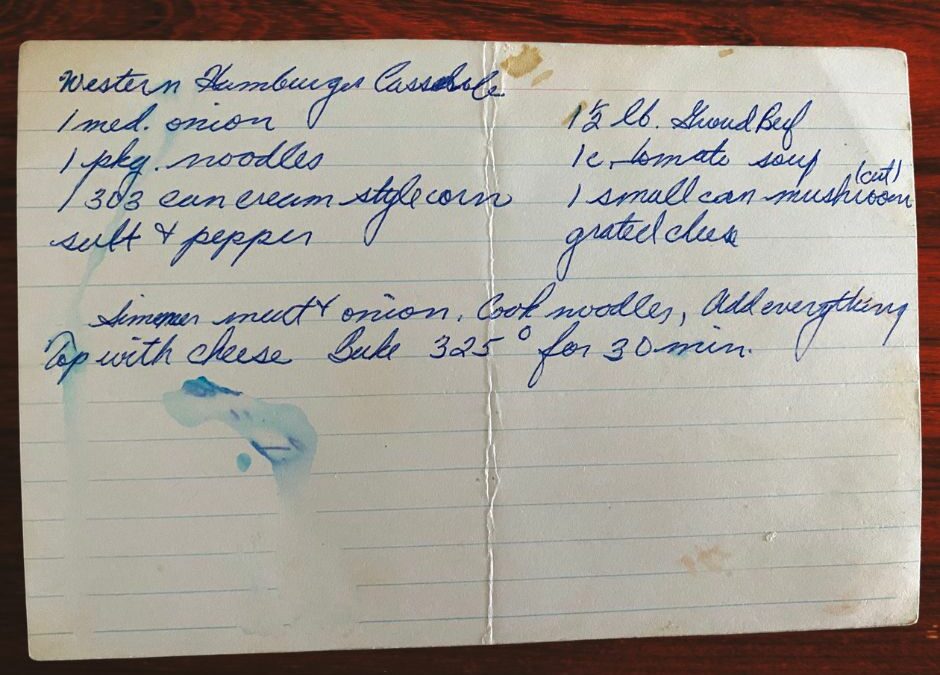 Western Hamburger Casserole
1 med. onion
1 pkg. noodles
1 303 can cream style corn
salt & pepper
1½ lb. Ground Beef
1 c. tomato soup
1 small can mushroom (cut)
grated cheese
Simmer meat & onion. Cook noodles, Add everything
Top with cheese Bake 325° for 30 min.